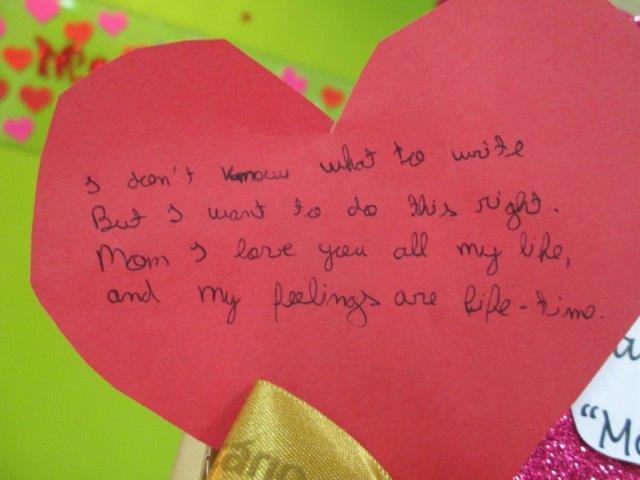 I don't know what to write
But I want to do this right.
Mom I love you all my life,
and my feelings are life-time.
ário
"Mo